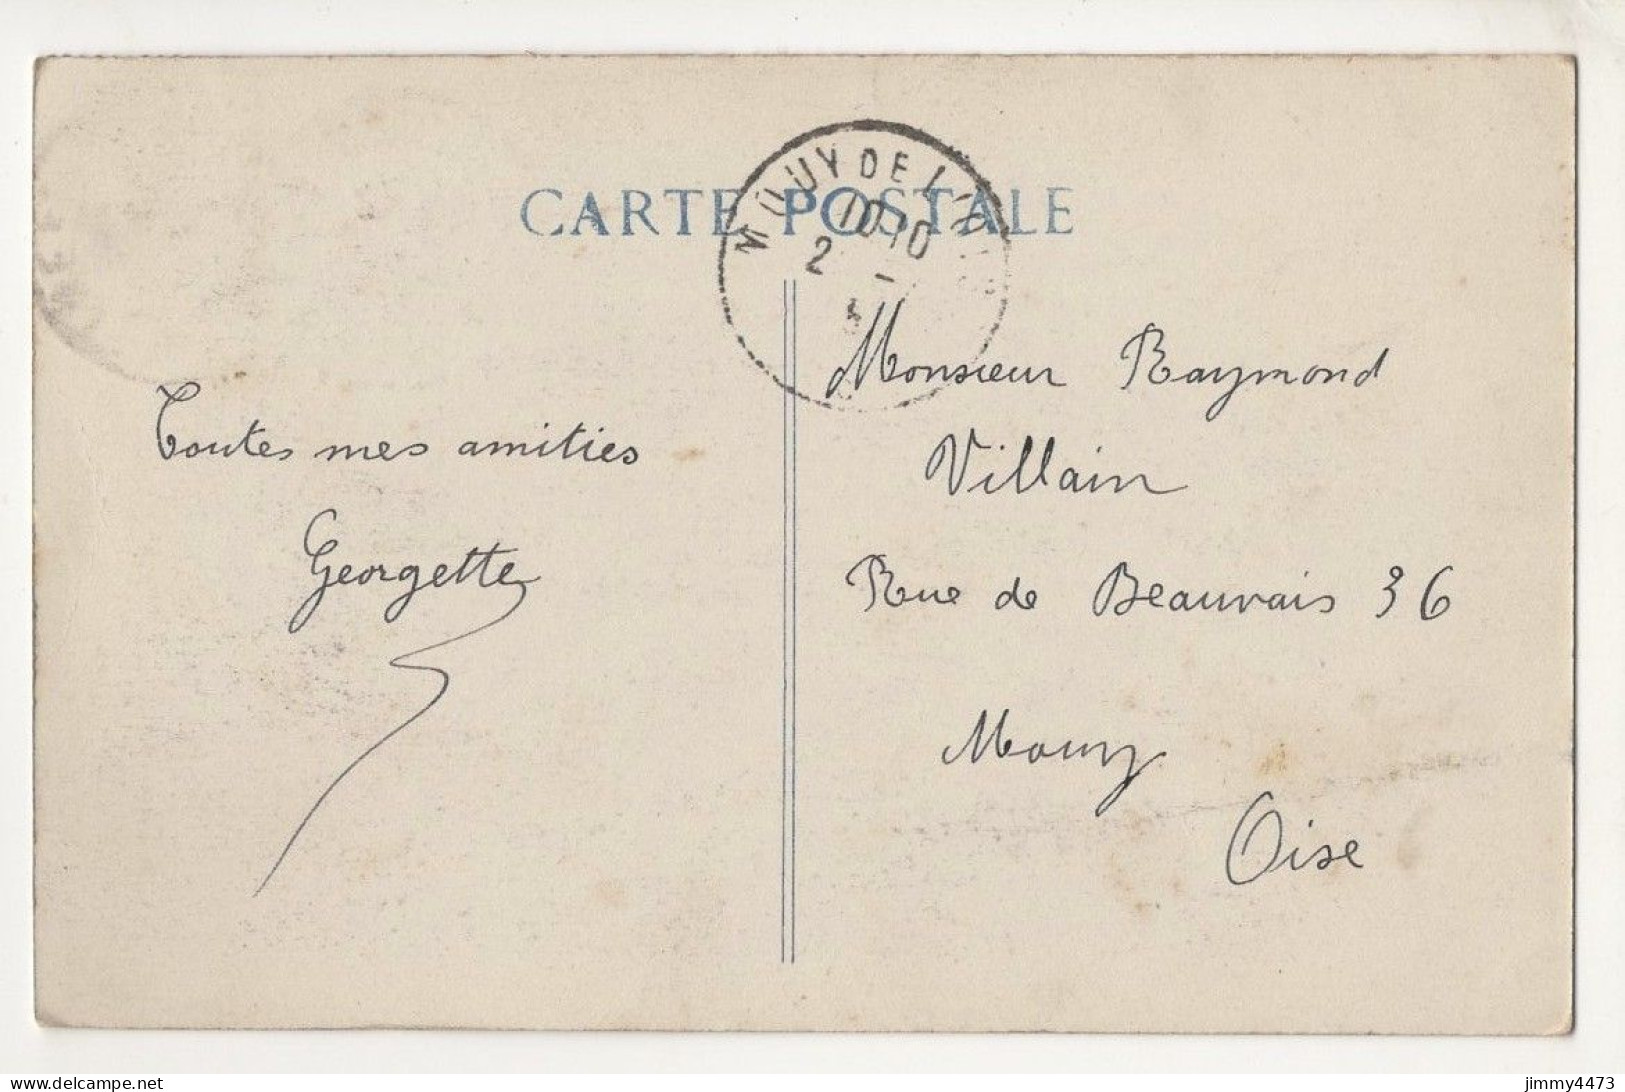 CARTE POSTALE
10 10
2 -
Toutes mes amitiés
Georgette
Monsieur Raymond
Villain
Rue de Beauvais 36
Mouy
Oise
delcampe.net
jimmy4473